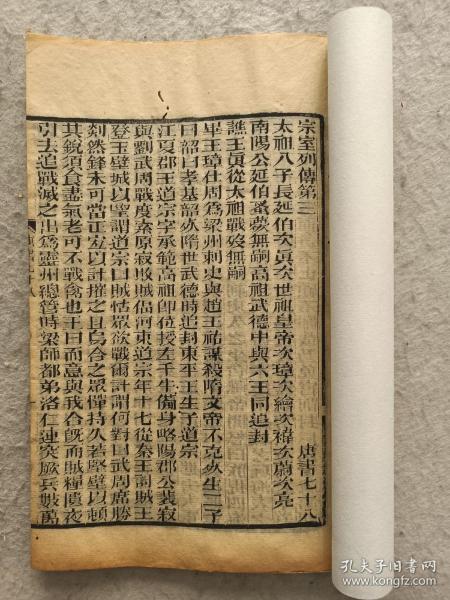 宗室列傳第三
唐書七十八
太祖八子長延伯次真次世祖皇帝次璋次繪次禕次蔚次亮
南陽公延伯蚤薨無嗣高祖武德中與六王同追封
譙王真從太祖戰歿無嗣
畢王璋仕周爲梁州刺史與趙王祐謀殺隋文帝不克死生二子
曰韶曰孝基韶死隋世武德時追封東平王生子道宗
江夏郡王道宗字承範高祖卽位授左千牛備身略陽郡公裴寂
與劉武周戰度索原寂敗賊偪河東道宗年十七從秦王討賊王
登玉壁城以望謂道宗曰賊怙眾欲戰爾計謂何對曰武周席勝
剡然鋒未可當正宜以計摧之且烏合之眾憚持久若堅壁以頓
其銳須食盡氣老可不戰禽也王曰而意與我合旣而賊糧匱夜
引去追戰滅之出爲靈州總管時梁師都弟洛仁連突厥兵數萬
孔夫子旧书网
www.kongfz.com